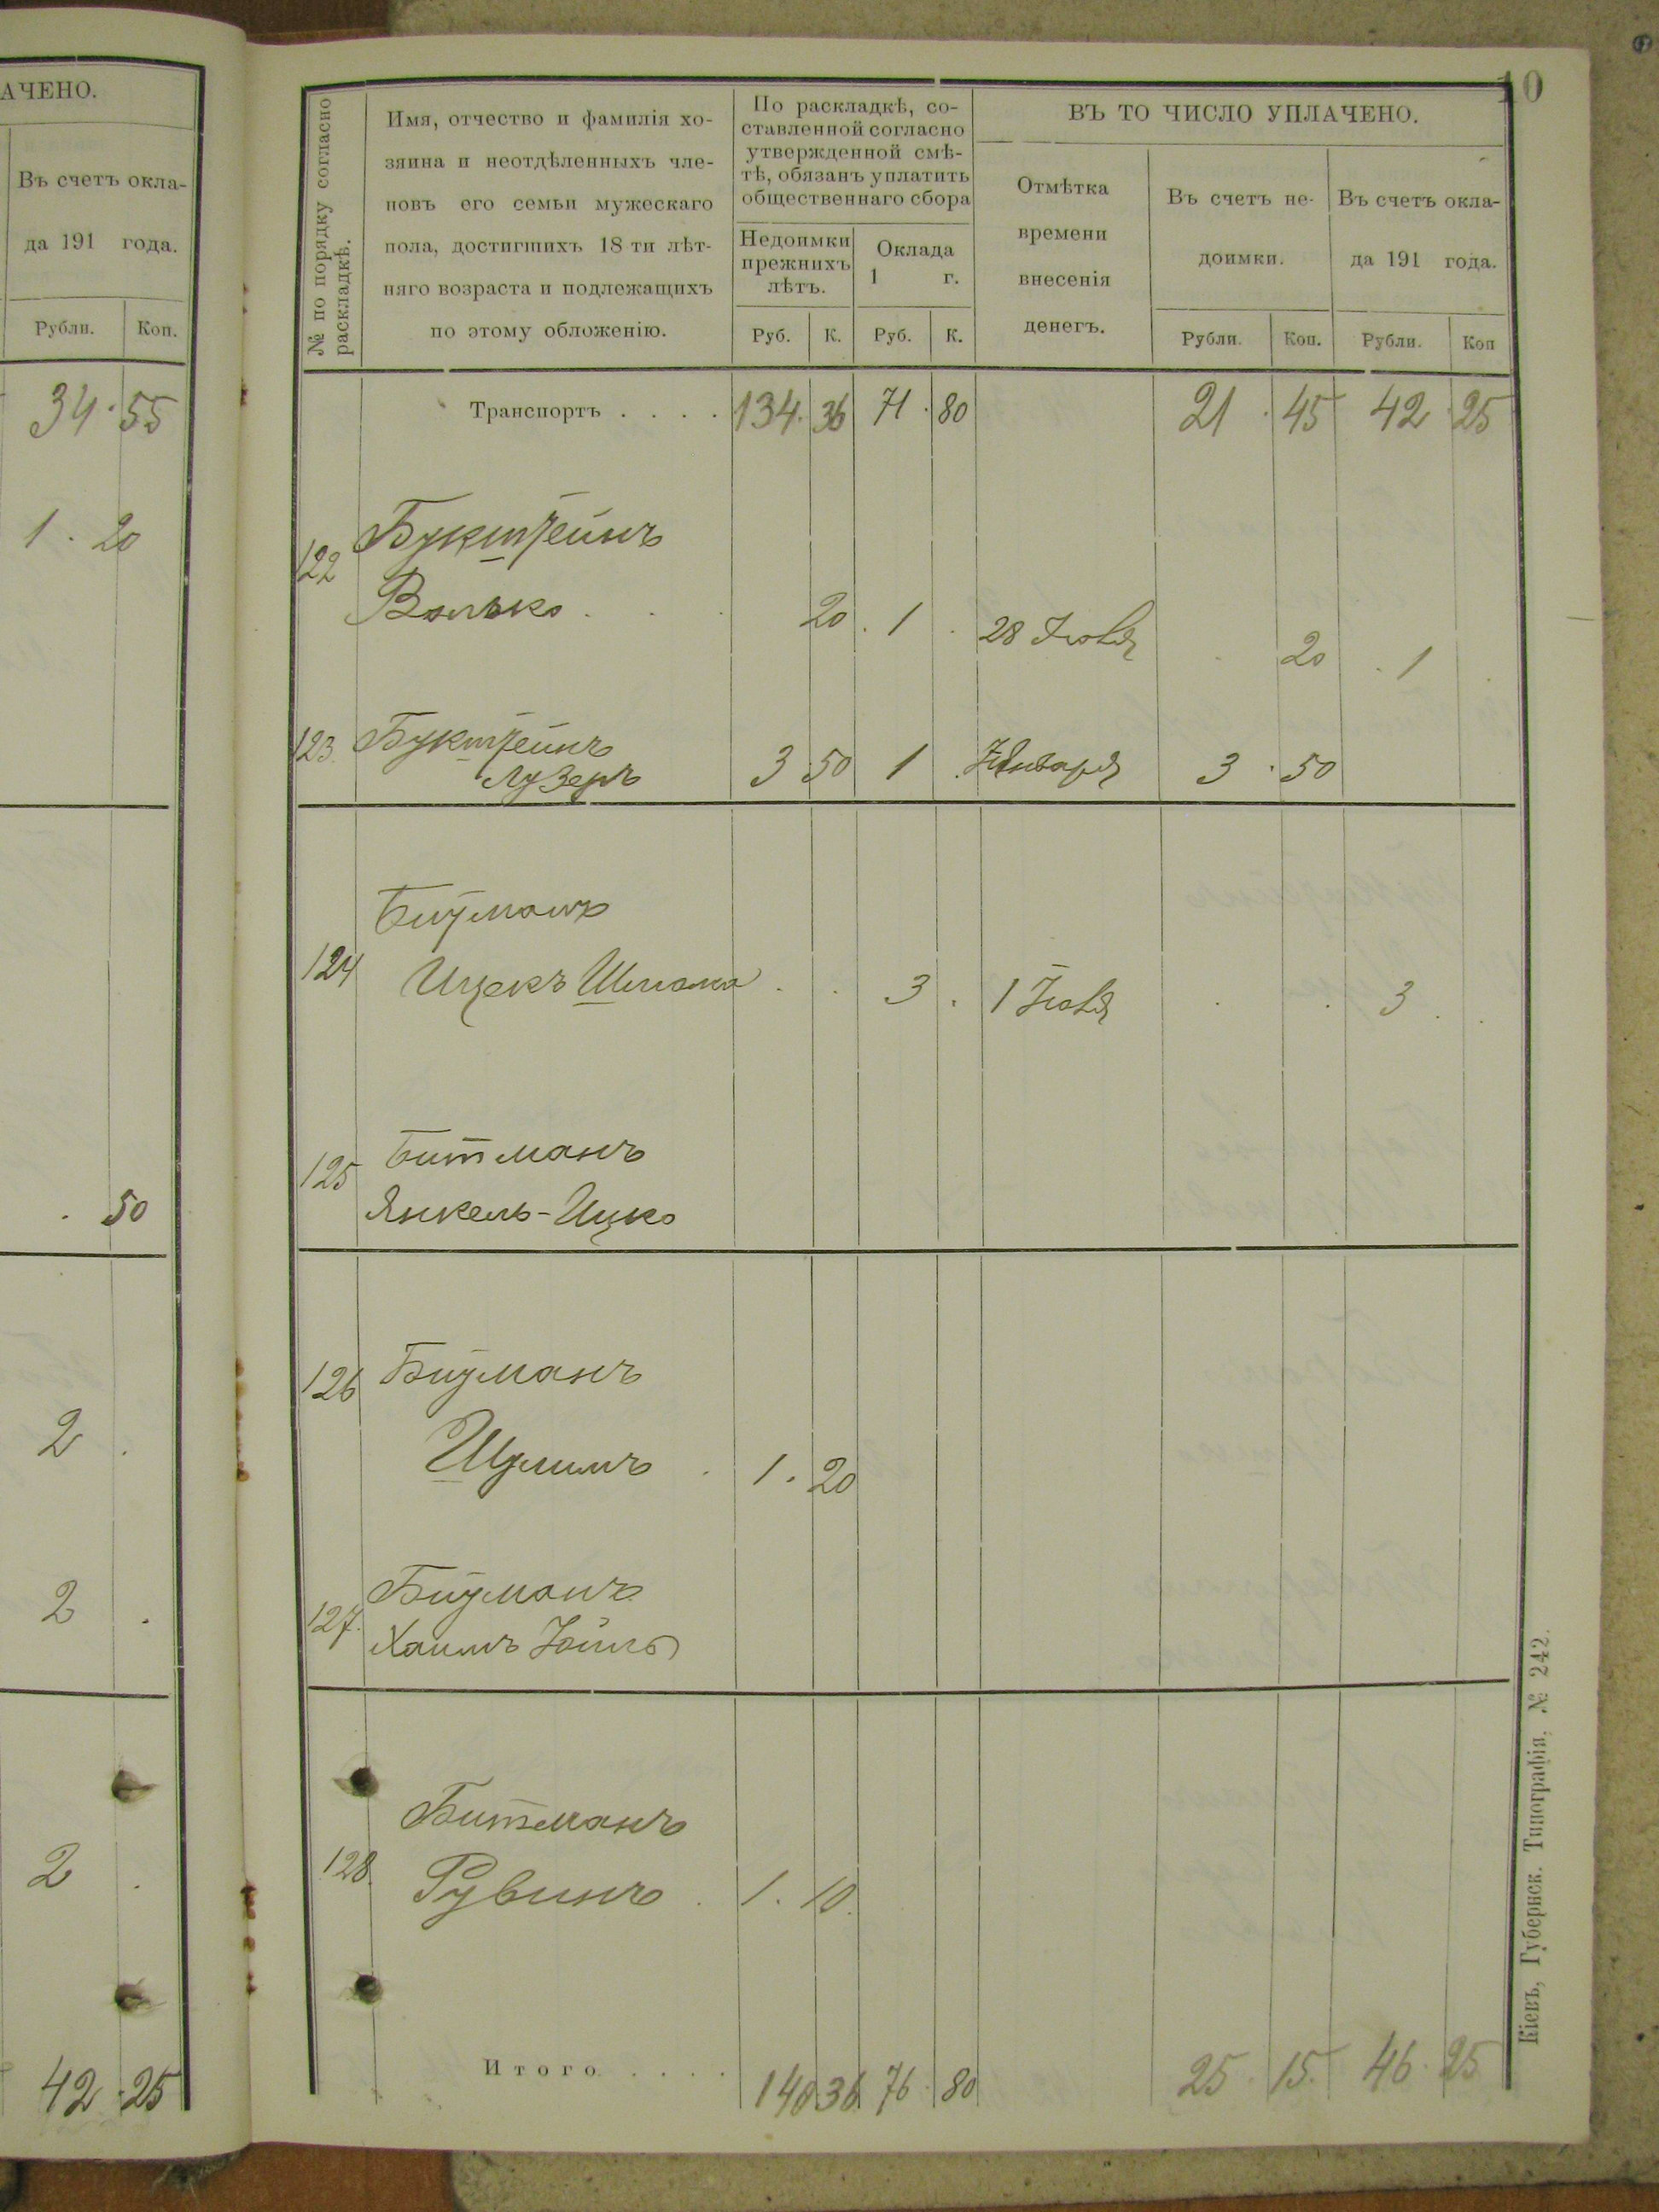 АЧЕНО.
Въ счетъ окла-
да 191 года.
Рубли. Коп.
34 55
1 20
50
2
2
2
42 25
10
№ по порядку согласно
раскладкѣ.
Имя, отчество и фамилія хо-
зяина и неотдѣленныхъ чле-
новъ его семьи мужескаго
пола, достигшихъ 18 ти лѣт-
няго возраста и подлежащихъ
по этому обложенію.
По раскладкѣ, со-
ставленной согласно
утвержденной смѣ-
тѣ, обязанъ уплатить
общественнаго сбора
Недоимки
прежнихъ
лѣтъ.
Оклада
1 г.
Руб. К. Руб. К.
ВЪ ТО ЧИСЛО УПЛАЧЕНО.
Отмѣтка
времени
внесенія
денегъ.
Въ счетъ не-
доимки.
Въ счетъ окла-
да 191 года.
Рубли. Коп. Рубли. Коп
Транспортъ . . . . 134. 36 71 80 21 45 42 25
122 Букштейнъ
Волько 20 1 28 Іюля 20 1
123. Букштейнъ
Лузеръ 3 50 1 Января 3 50
Битманъ
124 Ицекъ Шмома 3 1 Іюля 3
125 Битманъ
Янкель-Ицко
126 Битманъ
Шулимъ 1. 20
127. Битманъ
Хаимъ Іойль
Битманъ
128. Рувинъ 1. 10
Итого . . . . 140 36 76 80 25 15 46 25
Кіевъ, Губернск. Типографія, № 242.